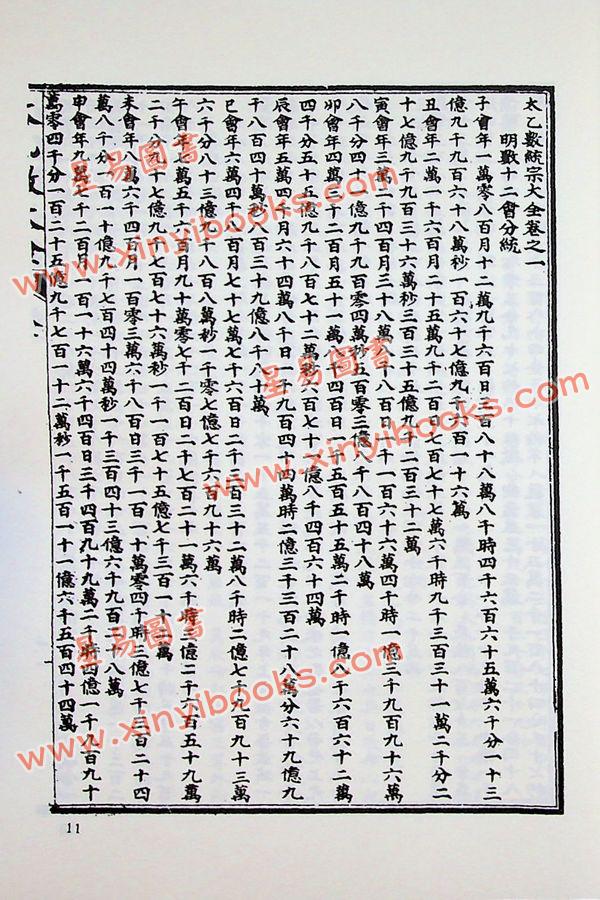 太乙數統宗大全卷之一
明數十二會分統
子會年一萬零八百月十二萬九千六百日三百八十八萬八千時四千六百六十五萬六千分一十三
億九千九百六十八萬秒一百六十七億九千六百一十六萬
丑會年二萬一千六百月二十五萬九千二百日七百七十七萬六千時九千三百三十一萬二千分二
十七億九千九百三十六萬秒三百三十五億九千二百三十二萬
寅會年三萬二千四百月三十八萬八千八百日一千一百六十六萬四千時一億三千九百九十六萬
八千分四十一億九千九百零四萬秒五百零三億八千八百四十八萬
卯會年四萬三千二百月五十一萬八千四百日一千五百五十五萬二千時一億八千六百六十二萬
四千分五十五億九千八百七十二萬秒六百七十一億八千四百六十四萬
辰會年五萬四千月六十四萬八千日一千九百四十四萬時二億三千三百二十八萬分六十九億九
千八百四十萬秒八百三十九億八千八十萬
巳會年六萬四千八百月七十七萬七千六百日二千三百三十二萬八千時二億七千九百九十三萬
六千分八十三億九千八百八萬秒一千零七億七千六百九十六萬
午會年七萬五千六百月九十萬零七千二百日二千七百二十一萬六千時三億二千六百五十九萬
二千分九十七億九千七百七十六萬秒一千一百七十五億七千三百一十二萬
未會年八萬六千四百月一百零三萬六千八百日三千一百一十萬零四千時三億七千三百二十四
萬八千分一百一十億九千七百四十四萬秒一千三百四十三億六千九百二十八萬
申會年九萬七千二百月一百一十六萬六千四百日三千四百九十九萬二千時四億一千九百九十
萬零四千分一百二十五億九千七百一十二萬秒一千五百一十一億六千五百四十四萬
11
星易圖書
www.xinyibooks.com
星易圖書
www.xinyibooks.com
星易圖書
www.xinyibooks.com